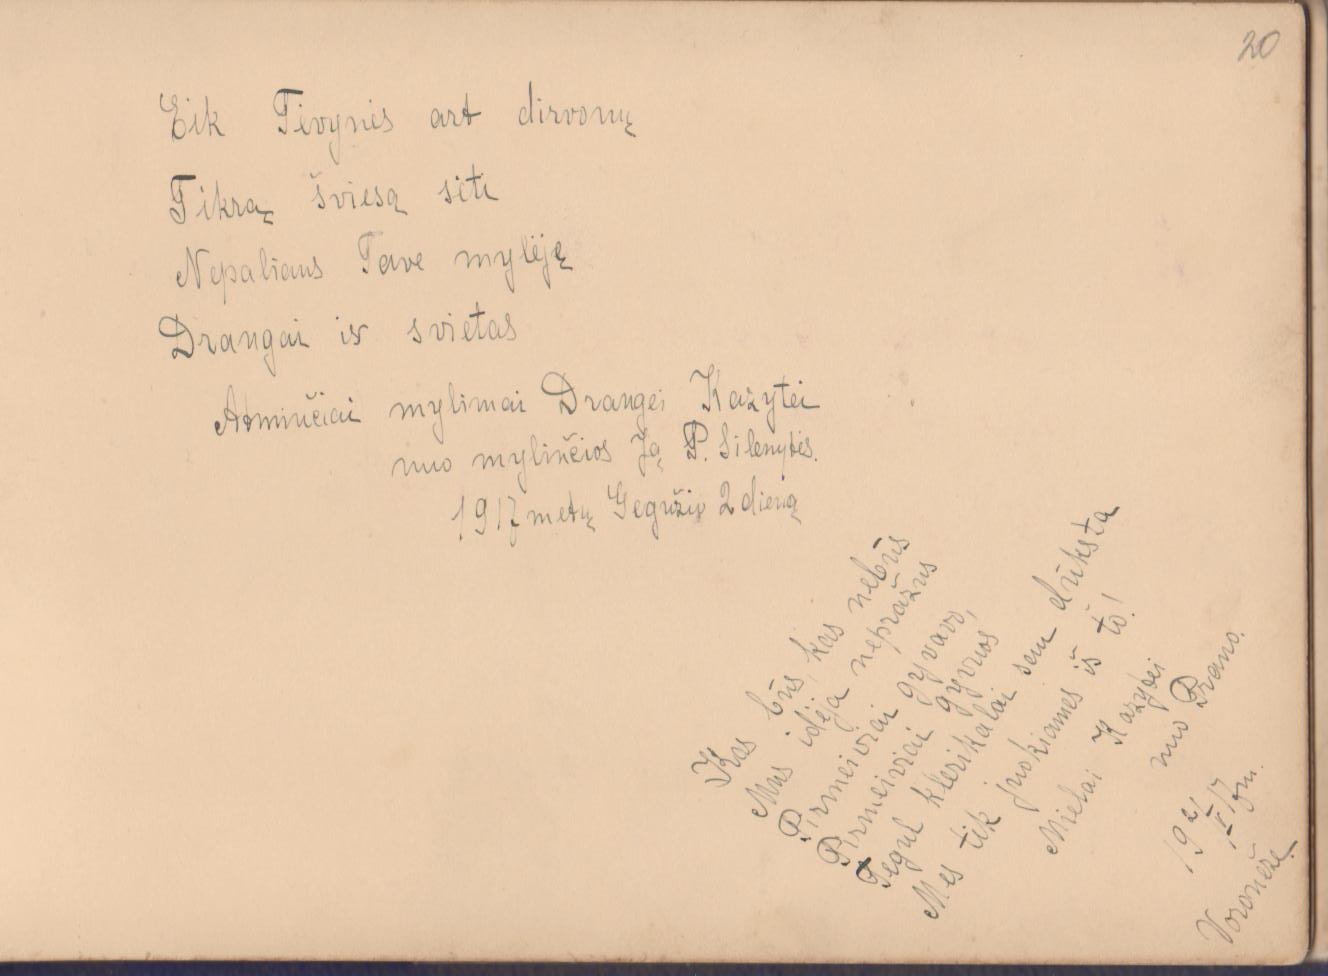 20
Eik Tėvynės art dirvonų
Tikrą šviesą sėti
Nepaliaus Tave mylėję
Draugai ir svietas
Atminčiai mylimai Draugei Kazytei
nuo mylinčios Ją P. Silenytės.
1917 metų Gegužio 2 dieną
Kas būs, kas nebūs
Mus idėja nepražus
Pirmeiviai gyvavo,
Pirmeiviai gyvuos
Tegul klerikalai sem dūksta
Mes tik juokiamės iš to!
Mielai Kazytei
nuo Prano.
19 21/V 17 m.
Voroneže.